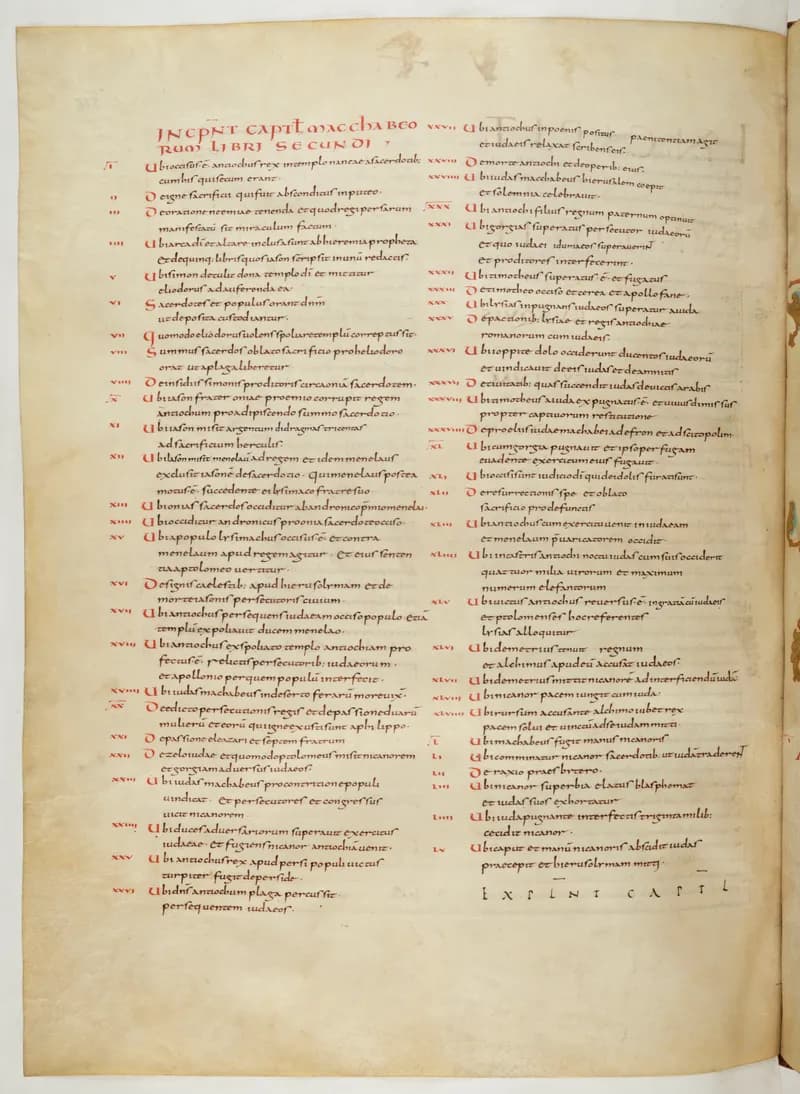 INCPNT CAPIT MACCHABEO
RUM LIBRI SECUNDI
I Ubi occisus ē antiochus rex in templo naneae a sacerdotib;
cum his qui secum erant·
II De igne sacrificii qui fuit absconditus in puteo·
III De oratione neemiae tenenda et quod regi persarum
manifestatū sit miraculum factum·
IIII Ubi arca dī et altare inclusa sunt ab hieremia propheta
Et de quinq; libris quos iason scripsit in unū redactis·
V Ubi simon detulit dona templo dī et mittatur
eliodorus ad auferenda ea·
VI Sacerdotes et populus orant dnm
ut deposita custodiantur·
VII Quomodo eliodorus uolens spoliare templū correptus sit·
VIII Summus sacerdos oblato sacrificio pro heliodoro
orat ut a plaga liberetur
VIIII De insidiis simonis proditoris circa oniā sacerdotem·
X Ubi iason frater oniae proemio corrupit regem
antiochum pro adipiscendo summo sacerdotio·
XI Ubi iason misit argentum didragmas trecentas
ad sacrificium herculis·
XII Ubi iason misit menelaū ad regem et idem menelaus
exclusit iasonē de sacerdotio· Qui menelaus postea
motus ē· succedente ei lysimaco fratre suo
XIII Ubi onias sacerdos occiditur ab andronico pmio menelai·
XIIII Ubi occiditur andronicus pro onia sacerdote occiso·
XV Ubi a populo lysimachus occisus ē· Et contra
menelaum apud regem agitur· Et eius senten
tia a ptolomeo uertitur·
XVI De signis caelestib; apud hierusolymam et de
morte iasonis persecutoris ciuium·
XVII Ubi antiochus persequens iudaeam occiso populo etiā
templū expoliauit ducem menelao·
XVIII Ubi antiochus exspoliato templo antiochiam pro
fectus ē· relictis persecutorib; iudaeorum·
et apollonio per quem populū interfecit·
XVIIII Ubi iudas machabeus in deserto ferarū more uix·
XX De edicto persecutionis regis et de passione duarū
mulierū et eorū qui igne exusti sunt a phlippo·
XXI De passione eleazari et septem fratrum
XXII De zelo iudae et quomodo ptolomeus misit nicanorem
et gorgiam aduersus iudaeos·
XXIII Ubi iudas machabeus pro contritione populi
uindicat· Et persecutores et congressus
uicit nicanorem·
XXIIII Ubi duces aduersariorum superauit exercitus
iudaeae· Et fugiens nicanor antiochiā uenit·
XXV Ubi antiochus rex apud persi populi uictus
turpiter fugit de perside·
XXVI Ubi dns antiochum plaga percussit·
persequentem iudaeos·
XXVII Ubi antiochus in poenis positus paenitentiam agit
et iudaeis relaxat scribens eis·
XXVIII De morte antiochi et de operib; eius·
XXVIIII Ubi iudas machabeus hierusalem coepit
et solemnia celebrauit·
XXX Ubi antiochi filius regnum paternum optinuit
XXXI Ubi gorgias superatus persecutor iudaeorū
et quo iudaei idumaeos superauerint
et proditores interfecerint·
XXXII Ubi timotheus superatus ē· et fugatus
XXXIII De timotheo occiso et cerea et apollofane·
XXX Ubi lysias inpugnans iudaeos superatur a iuda·
XXXV De pactionib; lysiae et regis antiochiae
romanorum cum iudaeis·
XXXVI Ubi ioppite dolo occiderunt ducentos iudaeorū
et uindicauit de eis iudas et de amnitis
XXXVII De ciuitatib; quas succendit iudas deuictas arabis
XXXVIII Ubi timotheus a iuda expugnatus ē· et uiuus dimissus
propter captiuorum restitutione
XXXVIIII De proeliis iudae machabei ad efron et ad scitopolim·
XL Ubi cum gorgia pugnauit et ipso per fugam
euadente exercitum eius fugauit·
XLI Ubi occisi sunt iudicio dī qui de idolis furati sunt·
XLII De resurrectionis spe et oblato
sacrificio pro defunctis
XLIII Ubi antiochus cum exercitu uenit in iudaeam
et menelaum puaricatorem occidit·
XLIIII Ubi in castris antiochi noctu iudas cum suis occiderit
quattuor milia uirorum et maximum
numerum elefantorum
XLV Ubi uictus antiochus reuersus ē· in gratiā cū iudaeis
et ptolomenses hoc referentes
lysias alloquitur
XLVI Ubi demetrius tenuit regnum
et alchimus apud eū accusat iudaeos·
XLVII Ubi demetrius mittit nicanorē ad interficiendū iudā
XLVIII Ubi nicanor pacem iungit cum iuda·
XLVIIII Ubi rursum accusante alchimo iubet rex
pacem solui et uinctū ad se iudam mitti·
L Ubi machabeus fugit manus nicanoris
LI Ubi comminatur nicanor sacerdotib; ut iudā traderent
LII De raxio praesbytero·
LIII Ubi nicanor superbia elatus blasphemat
et iudas suos exhortatur
LIIII Ubi iuda pugnante interfectis triginta milib;
cecidit nicanor·
LV Ubi caput et manū nicanoris abscidit iudas
praecepit et hierusolymam mitti·
EXPLNT CAPTL